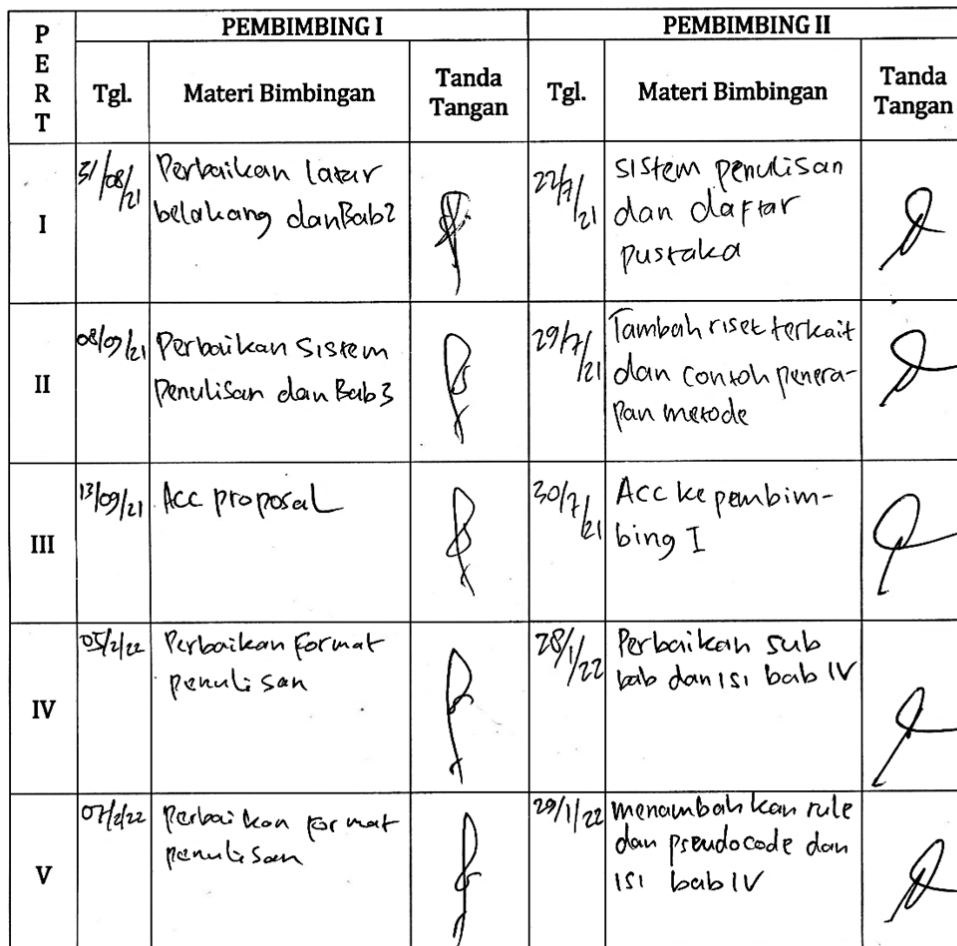 PERT
PEMBIMBING I
PEMBIMBING II
Tgl.
Materi Bimbingan
Tanda
Tangan
Tgl.
Materi Bimbingan
Tanda
Tangan
I
31/08/21
Perbaikan latar
belakang dan Bab 2
22/7/21
Sistem penulisan
dan daftar
pustaka
II
08/09/21
Perbaikan Sistem
Penulisan dan Bab 3
29/7/21
Tambah riset terkait
dan contoh penera-
pan metode
III
13/09/21
Acc proposal
30/7/21
Acc ke pembim-
bing I
IV
05/2/22
Perbaikan format
penulisan
28/1/22
Perbaikan sub
bab dan isi bab IV
V
07/2/22
Perbaikan format
penulisan
29/1/22
menambahkan rule
dan pseudocode dan
isi bab IV